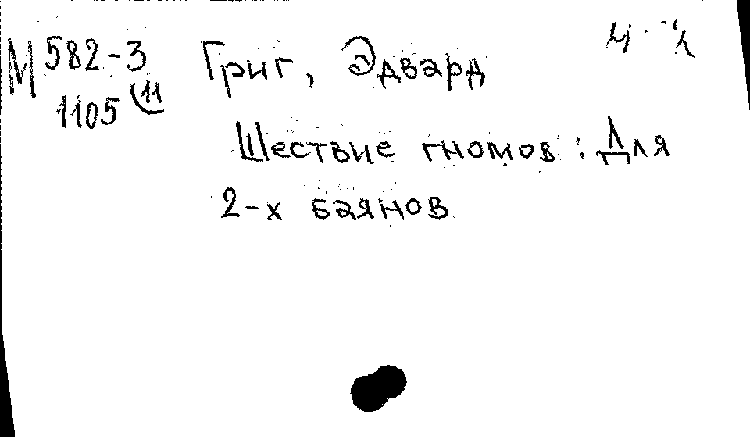 М 582-3 Григ, Эдвард
1105 (11
Шествие гномов : Для
2-х баянов